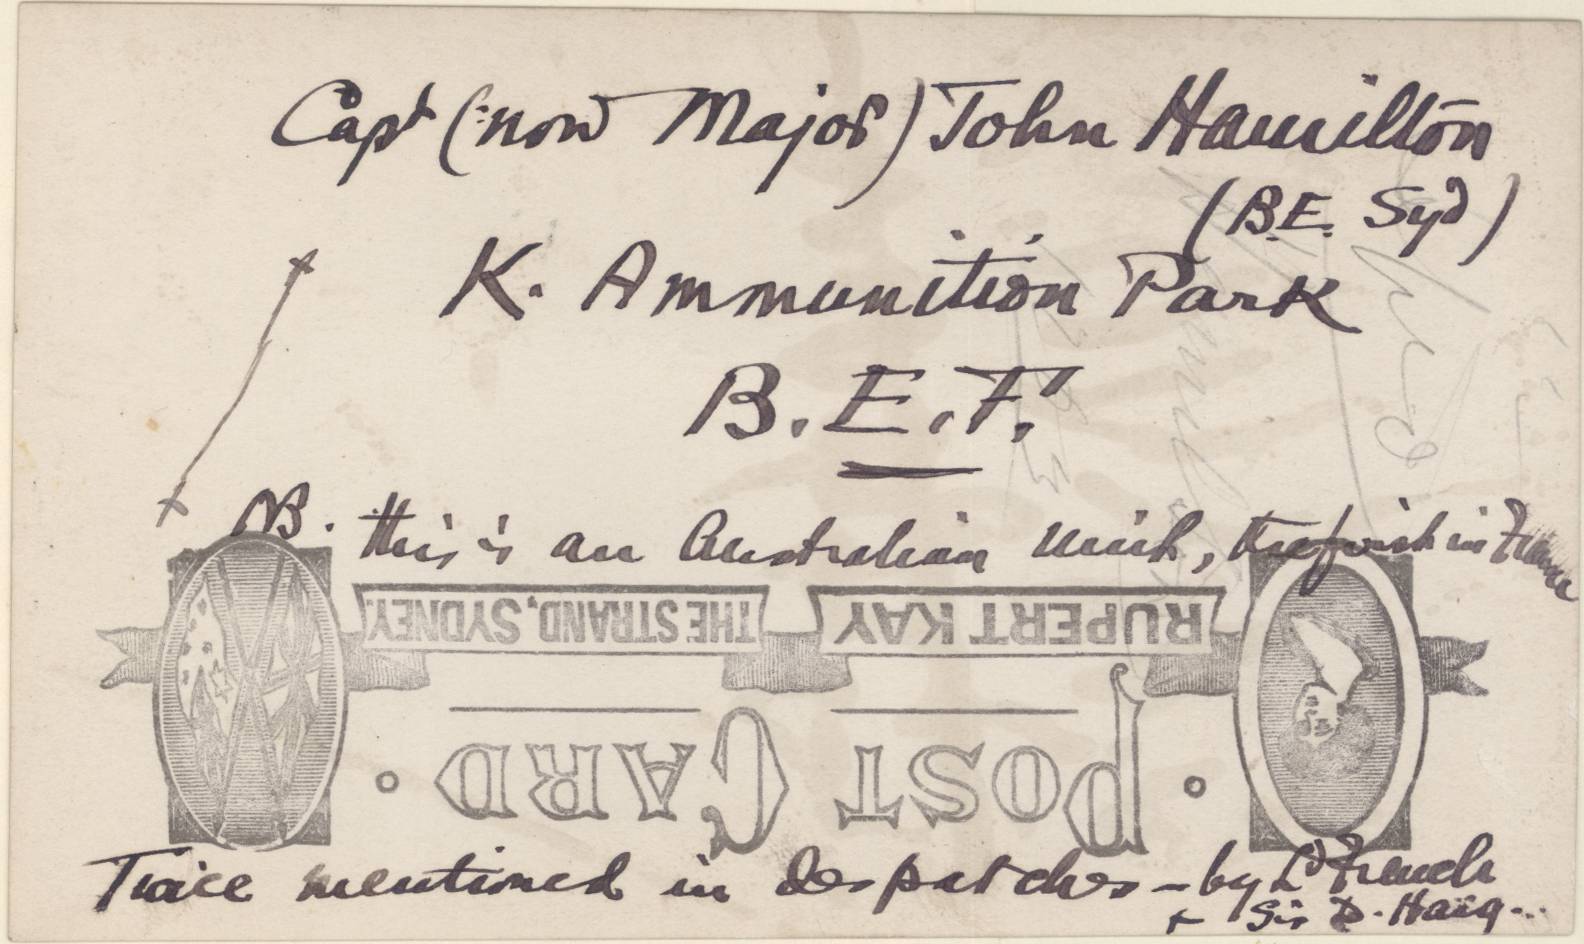 Capt (now Major) John Hamilton
(B.E. Syd)
K. Ammunition Park
B.E.F.
NB. this is an Australian Unit, the first in France
THE STRAND, SYDNEY.
RUPERT KAY
POST CARD
Twice mentioned in despatches - by Ld French
+ Sir D. Haig...